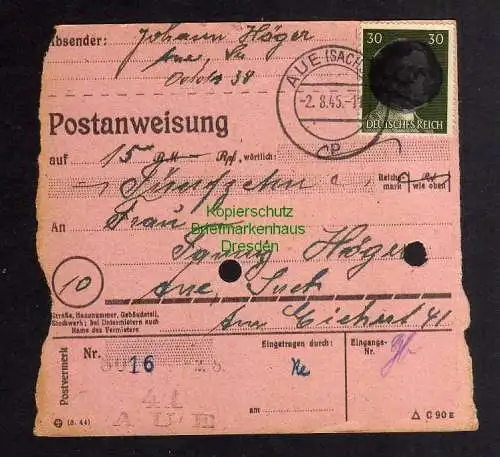 Absender: Johann Höger
Aue, Sa
AUE (SACHS
-2.8.45.-1
P
30 30
DEUTSCHES REICH
Postanweisung
auf 15 RM — Rpf, wörtlich:
Fünfzehn Reichsmark wie oben
An Frau
Höger
10
Aue,
Straße, Hausnummer, Gebäudeteil,
Stockwerk; bei Untermietern auch
Name des Vermieters
Aue Eichert 41
Postvermerk
Nr. 16
Eingetragen durch:
Eingangs-
Nr.
41
AUE
am
(8.44)
△ C90E
Kopierschutz
Briefmarkenhaus
Dresden